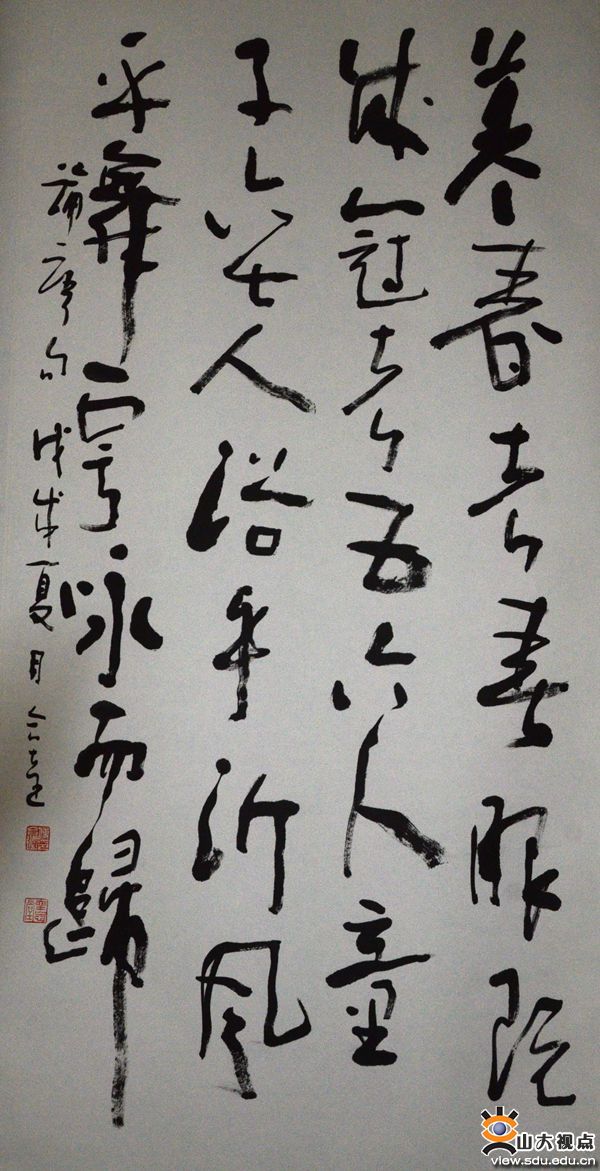 暮春者春服既
成冠者五六人童
子六七人浴乎沂风
乎舞雩咏而歸
戊戌夏月
山大视点
view.sdu.edu.cn